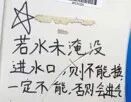 若水未淹没
进水口,则不能接
一定不能,否则会进气